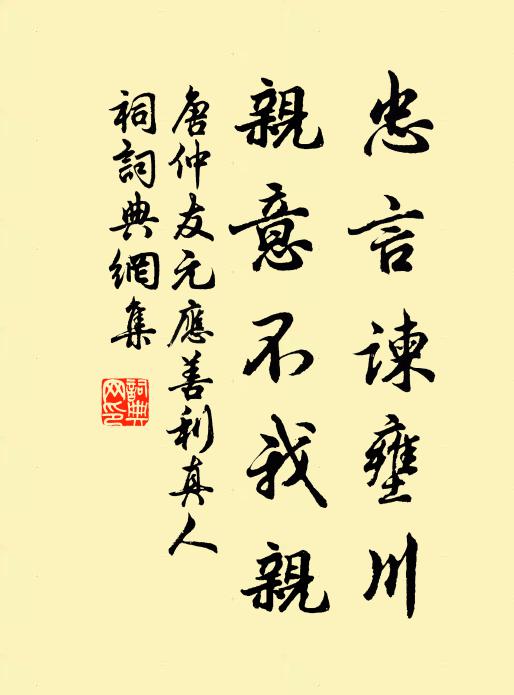 忠言諫壅川
親意不我親
唐仲友元應善利真人
祠詞典網集
詞典
网印